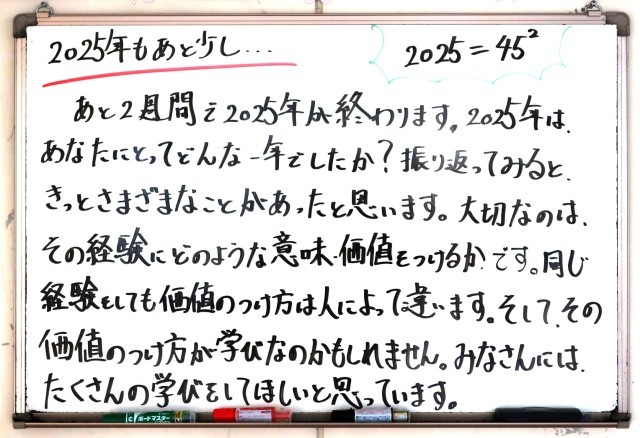 2025年もあと少し…
2025=45²
あと2週間で2025年が終わります。2025年は、
あなたにとってどんな一年でしたか？振り返ってみると、
きっとさまざまなことがあったと思います。大切なのは、
その経験にどのような意味・価値をつけるかです。同じ
経験をしても価値のつけ方は人によって違います。そして、その
価値のつけ方が学びなのかもしれません。みなさんには、
たくさんの学びをしてほしいと思っています。
ボードマスター